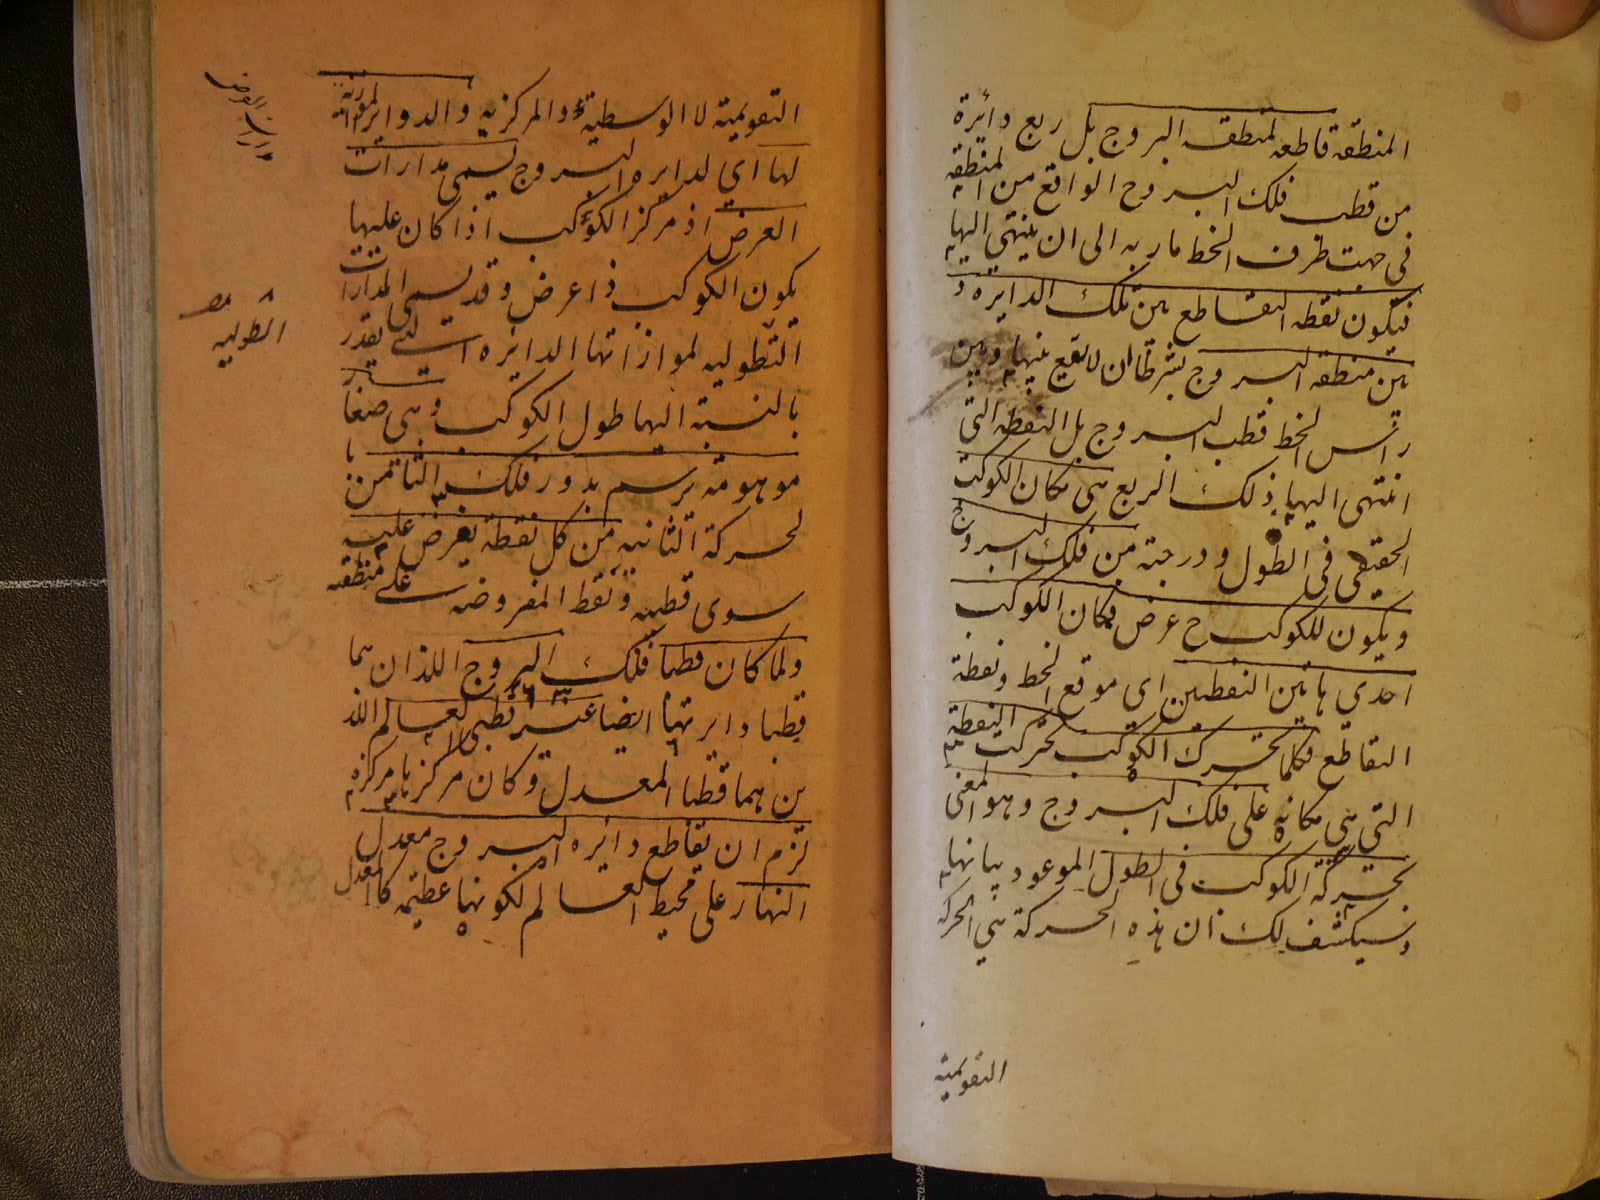 المنطقة قاطعه لمنطقه البروج بل ربع دائرة
من قطب فلك البروج الواقع من المنطقه
في جهت طرف الخط مار به الى ان ينتهي اليها
فيكون نقطه التقاطع بين تلك الدايرة و
بين منطقه البروج بشرط ان لا يقع بينها وبين
رأس الخط قطب البروج بل النقطه التي
انتهى اليها ذلك الربع هي مكان الكوكب
الحقيقي في الطول ودرجته من فلك البروج
ويكون للكوكب ح عرض فكان الكوكب
احدي هاتين النقطين اى موقع الخط ونقطة
التقاطع فكلما تحرك الكوكب تحركت النقطة
التي هي مكانه على فلك البروج وهو المعنى
بحركة الكوكب في الطول الموعود بيانها
وسيكشف لك ان هذه الحركة هي الحركة
التقويمية
التقويمية لا الوسطية والمركزيه والدواير الموازية
لها اي لدايره البروج يسمى مدارات
العرض اذ مركز الكوكب اذا كان عليها
يكون الكوكب ذا عرض وقد يسمى المدارات
الطوليه لموازاتها الدائره التي يقدر
بالنسبة اليها طول الكوكب وهي صغار
موهومة يرسم بدور فلك الثامن با
لحركة الثانيه من كل نقطة يفرض عليه
سوى قطبيه ونقط المفروضه على منطقه
ولما كان قطبا فلك البروج اللذان هما
قطبا دايرتها ايضا غير قطبي العالم اللذ
ين هما قطبا المعدل وكان مركزها مركزه
لزم ان تقاطع دائره البروج معدل
النهار على محيط العالم لكونها عظيمه كالمعدل
مدارات العرض
الطوليه